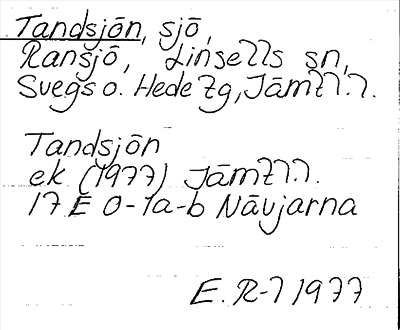 Tandsjōn, sjō,
Ransjō, Linsells sn,
Svegs o. Hede tg, Jāmtl. l.
Tandsjōn
ek (1977) Jāmtl. l.
17 E 0-1a-b Nāvjarna
E. R-l 1977